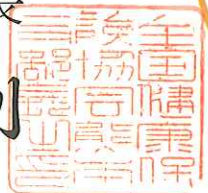 全国健康保
険協会熊本
支部長之印